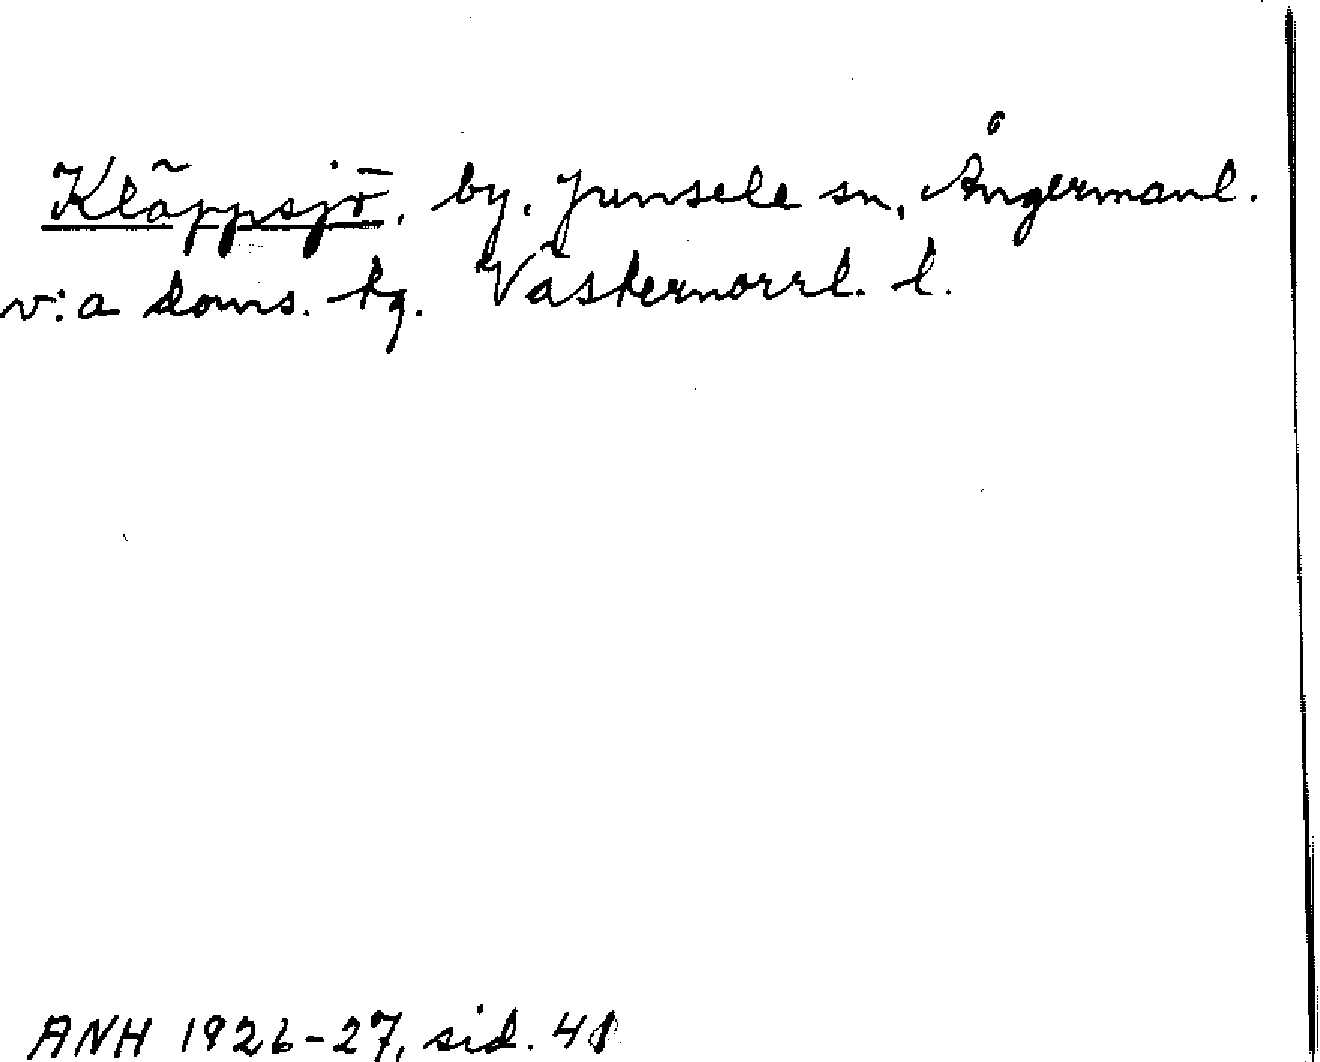 Kläppsjö, by, Junsele sn, Ångermanl.
v:a doms. tg. Västernorrl. l.
ANH 1926-27, sid. 48